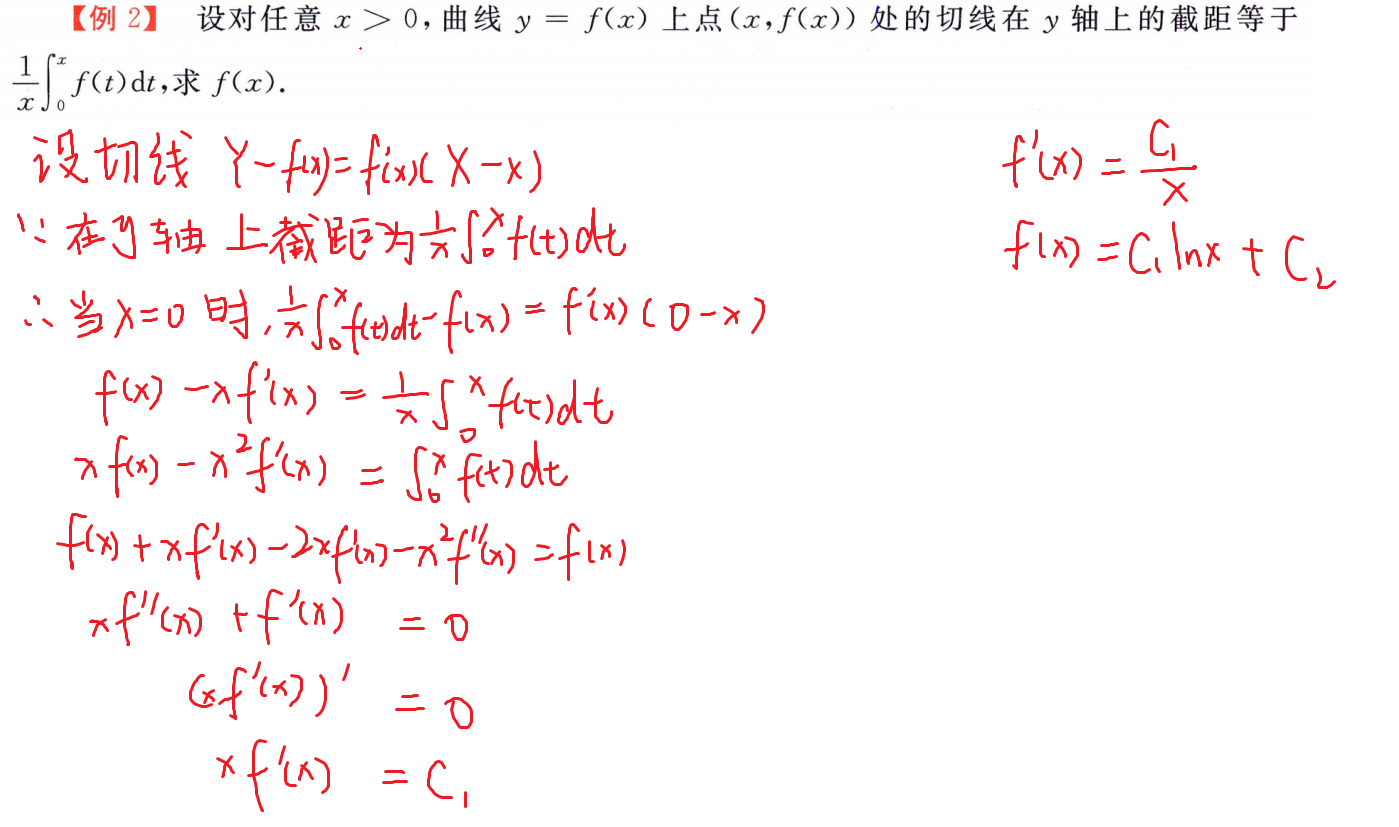 【例 2】 设对任意 x > 0,曲线 y = f(x) 上点(x,f(x)) 处的切线在 y 轴上的截距等于
1/x ∫₀ˣ f(t)dt,求 f(x).
设切线 Y-f(x)=f'(x)(X-x)
∵在y轴上截距为 1/x ∫₀ˣ f(t)dt
∴当X=0时, 1/x ∫₀ˣ f(t)dt-f(x) = f'(x)(0-x)
f(x) -xf'(x) = 1/x ∫₀ˣ f(t)dt
xf(x) - x²f'(x) = ∫₀ˣ f(t)dt
f(x)+xf'(x)-2xf'(x)-x²f''(x) =f(x)
xf''(x) +f'(x) = 0
(xf'(x))' = 0
xf'(x) = C₁
f'(x) = C₁/x
f(x) = C₁lnx + C₂